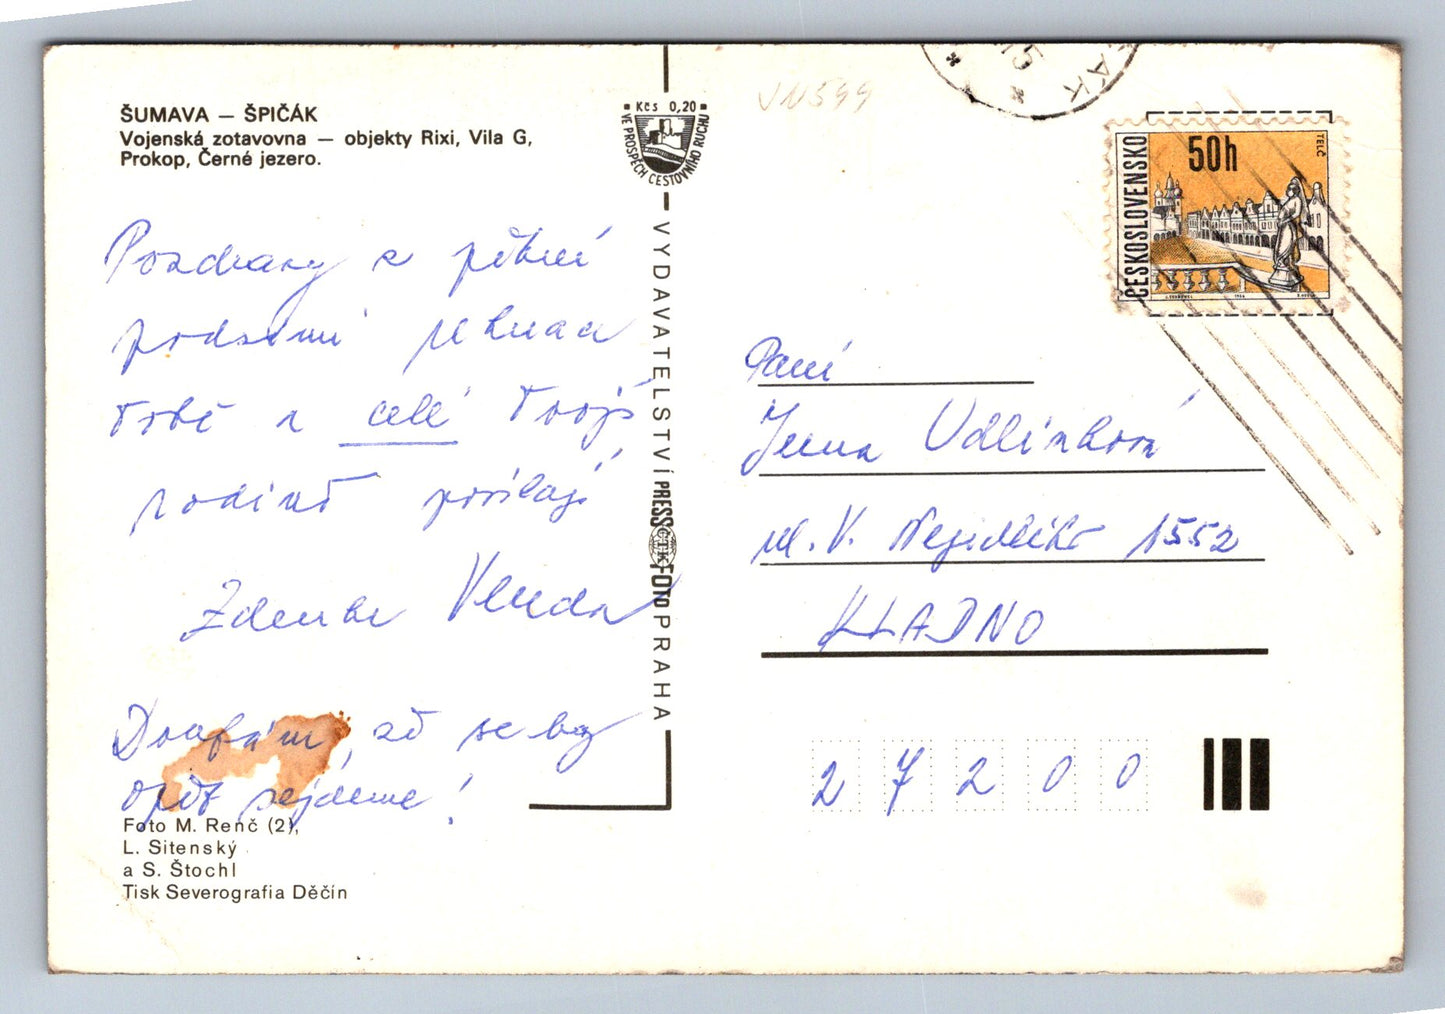 ŠUMAVA — ŠPIČÁK
Vojenská zotavovna — objekty Rixi, Vila G,
Prokop, Černé jezero.
Pozdravy z pěkné
podzimní
Tobě a celé Tvojí
rodině posílají
Zdenka Vlasta
Doufám, že se brzy
opět sejdeme!
Foto M. Renč (2),
L. Sitenský
a S. Štochl
Tisk Severografia Děčín
Kčs 0,20
VE PROSPĚCH CESTOVNÍHO RUCHU
VYDAVATELSTVÍ PRESSFOTO PRAHA
ČTK
VN599
15
ČÁK
ČESKOSLOVENSKO
50h
TELČ
1966
Paní
Jana
ul. V. Nejedlého 1552
KLADNO
27200